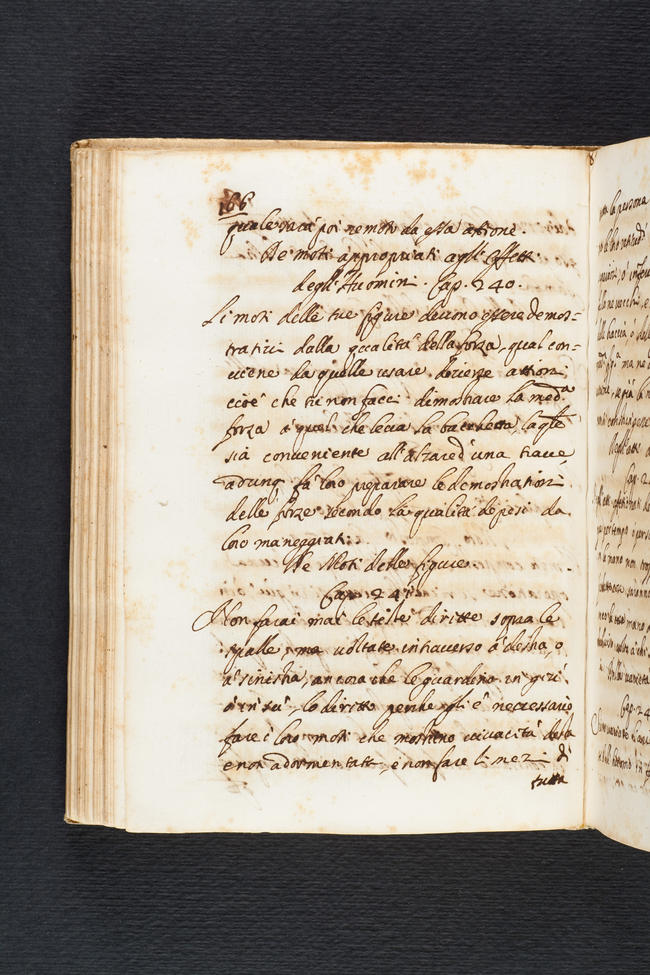 166
quale sarà poi remoto da essa attione.
De moti appropriati agl'effetti
degl'Huomini. Cap. 240.
Li moti delle tue figure devono essere demos-
trativi dalla qualità della forza, qual con-
viene da quelle usare diverse attioni
cioè che tu non facci dimostrare la med.ª
forza à quel che leva la bacchetta, la qle
sia conveniente all'alzare d'una trave,
adunq fà loro preparare le demostrationi
delle forze secondo la qualità de pesi da
loro maneggiati.
De Moti delle figure.
Cap. 241
Non farai mai le teste diritte sopra le
spalle, ma voltate intraverso à destra, o
à sinistra, ancora che le guardino in giù
ò in sù, lo diritte perche gli è necessario
fare i loro moti che mostrino vivacità desta
e non adormentata, e non fare li mezi di
tutta